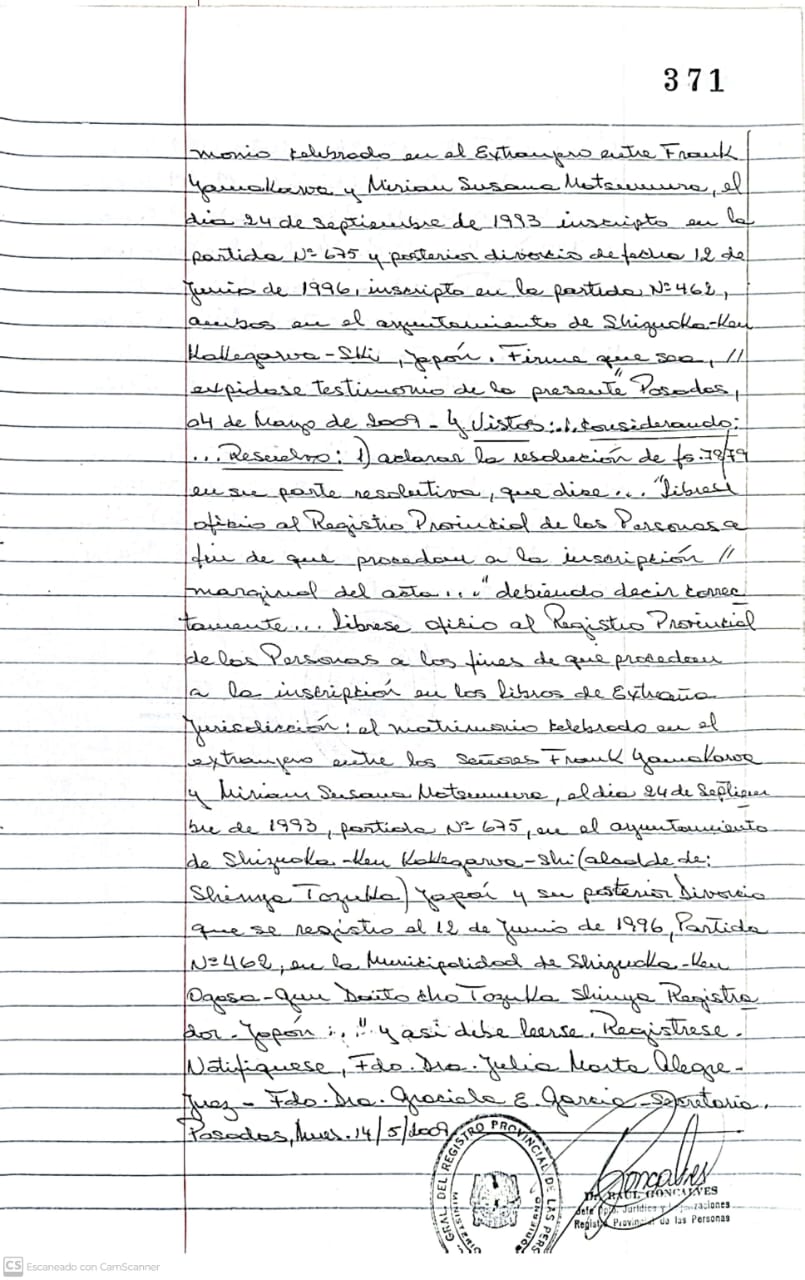 371
monio celebrado en el Extranjero entre Frank
Yamakawa y Mirian Susana Matsumura, el
día 24 de Septiembre de 1993 inscripto en la
partida Nº 675 y posterior divorcio de fecha 12 de
Junio de 1996, inscripto en la partida Nº 462,
ambos en el ayuntamiento de Shizuoka-Ken
Kakegarwa-Shi, Japón. Firme que sea, //
expidase testimonio de la presente" Posadas,
04 de Mayo de 2009 - Y Vistos: ... considerando:
... Resuelvo: 1) aclarar la resolución de fs. 78/79
en su parte resolutiva, que dise... "librese
oficio al Registro Provincial de las Personas a
fin de que procedan a la inscripción //
marginal del acta..." debiendo decir correc
tamente... librese oficio al Registro Provincial
de las Personas a los fines de que procedan
a la inscripción en los libros de Extraña
Jurisdicción: el matrimonio celebrado en el
extranjero entre los señores Frank Yamakawa
y Miriam Susana Matsumura, el día 24 de Septiem
bre de 1993, partida Nº 675, en el ayuntamiento
de Shizuoka-Ken Kakegarwa-Shi (alcalde de:
Shinya Tozuka) Japón y su posterior Divorcio
que se registro el 12 de Junio de 1996, Partida
Nº 462, en la Municipalidad de Shizuoka-Ken
Ogasa-Gun Daito Cho Tozuka Shinya Registra
dor - Japón..." y asi debe leerse. Registrese.
Notifiquese, Fdo. Dra. Julia Marta Alegre-
Juez - Fdo. Dra. Graciela E. Garcia - Secretaria.
Posadas, Mnes. 14/5/2009
GRAL. DEL REGISTRO PROVINCIAL DE LAS PERS
MINISTERIO GOBIERNO
Goncalves
Dr. RAUL GONCALVES
Jefe Dpto. Jurídico y
Registro Provincial de las Personas
CS Escaneado con CamScanner